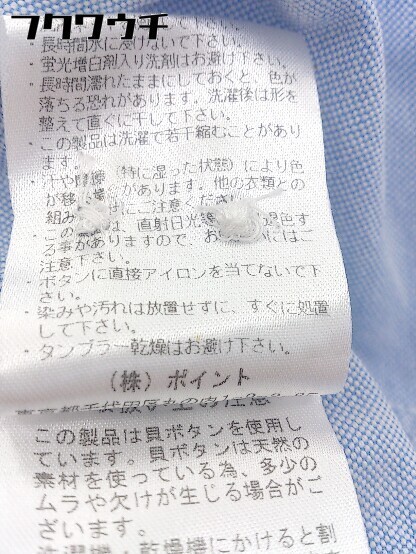 フクワウチ
・長時間水に浸けないで下さい。
・蛍光増白剤入り洗剤はお避け下さい。
・長時間濡れたままにしておくと、色が
落ちる恐れがあります。洗濯後は形を
整えて直ぐに干して下さい。
・この製品は洗濯で若干縮むことがあり
ます。
・汗や摩擦（特に湿った状態）により色
が移る があります。他の衣類との
組み にご注意ください
・この は、直射日光 退色す
る事がありますので、お にはご
注意下さい。
・ボタンに直接アイロンを当てないで下
さい。
・染みや汚れは放置せずに、すぐに処置
して下さい。
・タンブラー乾燥はお避け下さい。
（株）ポイント
この製品は貝ボタンを使用し
ています。貝ボタンは天然の
素材を使っている為、多少の
ムラや欠けが生じる場合がご
ざいます。
洗濯機・乾燥機にかけると割